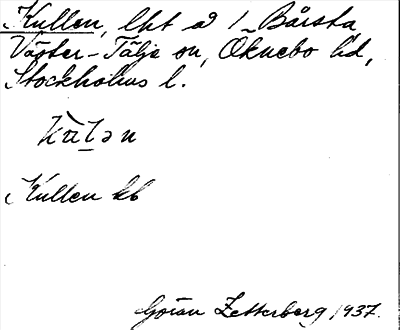 Kullen, lht å 1 Bårsta
Väster-Tälje sn, Öknebo hd,
Stockholms l.
Kullen kb
Göran Zetterberg 1937.